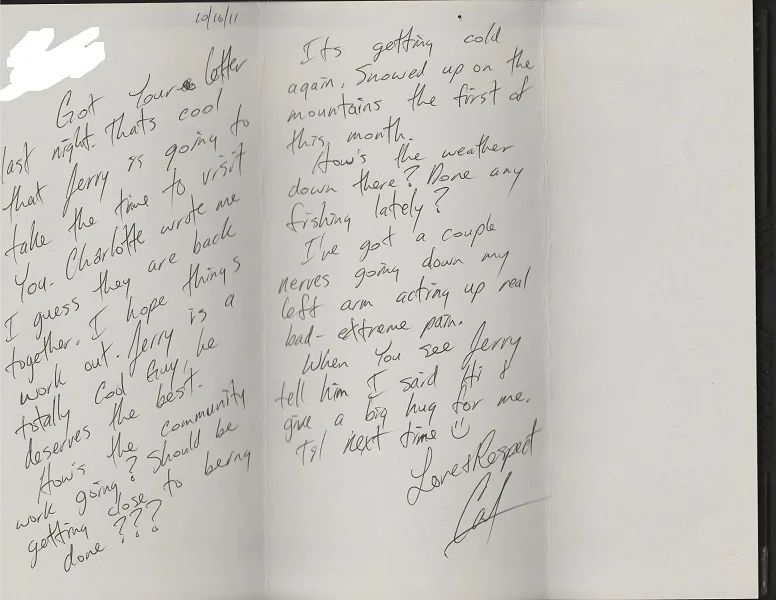 10/16/11
Got Your letter
last night. Thats cool
that Jerry is going to
take the time to visit
You. Charlotte wrote me
I guess they are back
together. I hope things
work out. Jerry is a
totally cool Guy, he
deserves the best.
How's the community
work going? Should be
getting close to being
done???
Its getting cold
again. Snowed up on the
mountains the first of
this month.
How's the weather
down there? Done any
fishing lately?
I've got a couple
nerves going down my
left arm acting up real
bad - extreme pain.
When You see Jerry
tell him I said Hi &
give a big hug for me.
Til next time ☺
Love & Respect